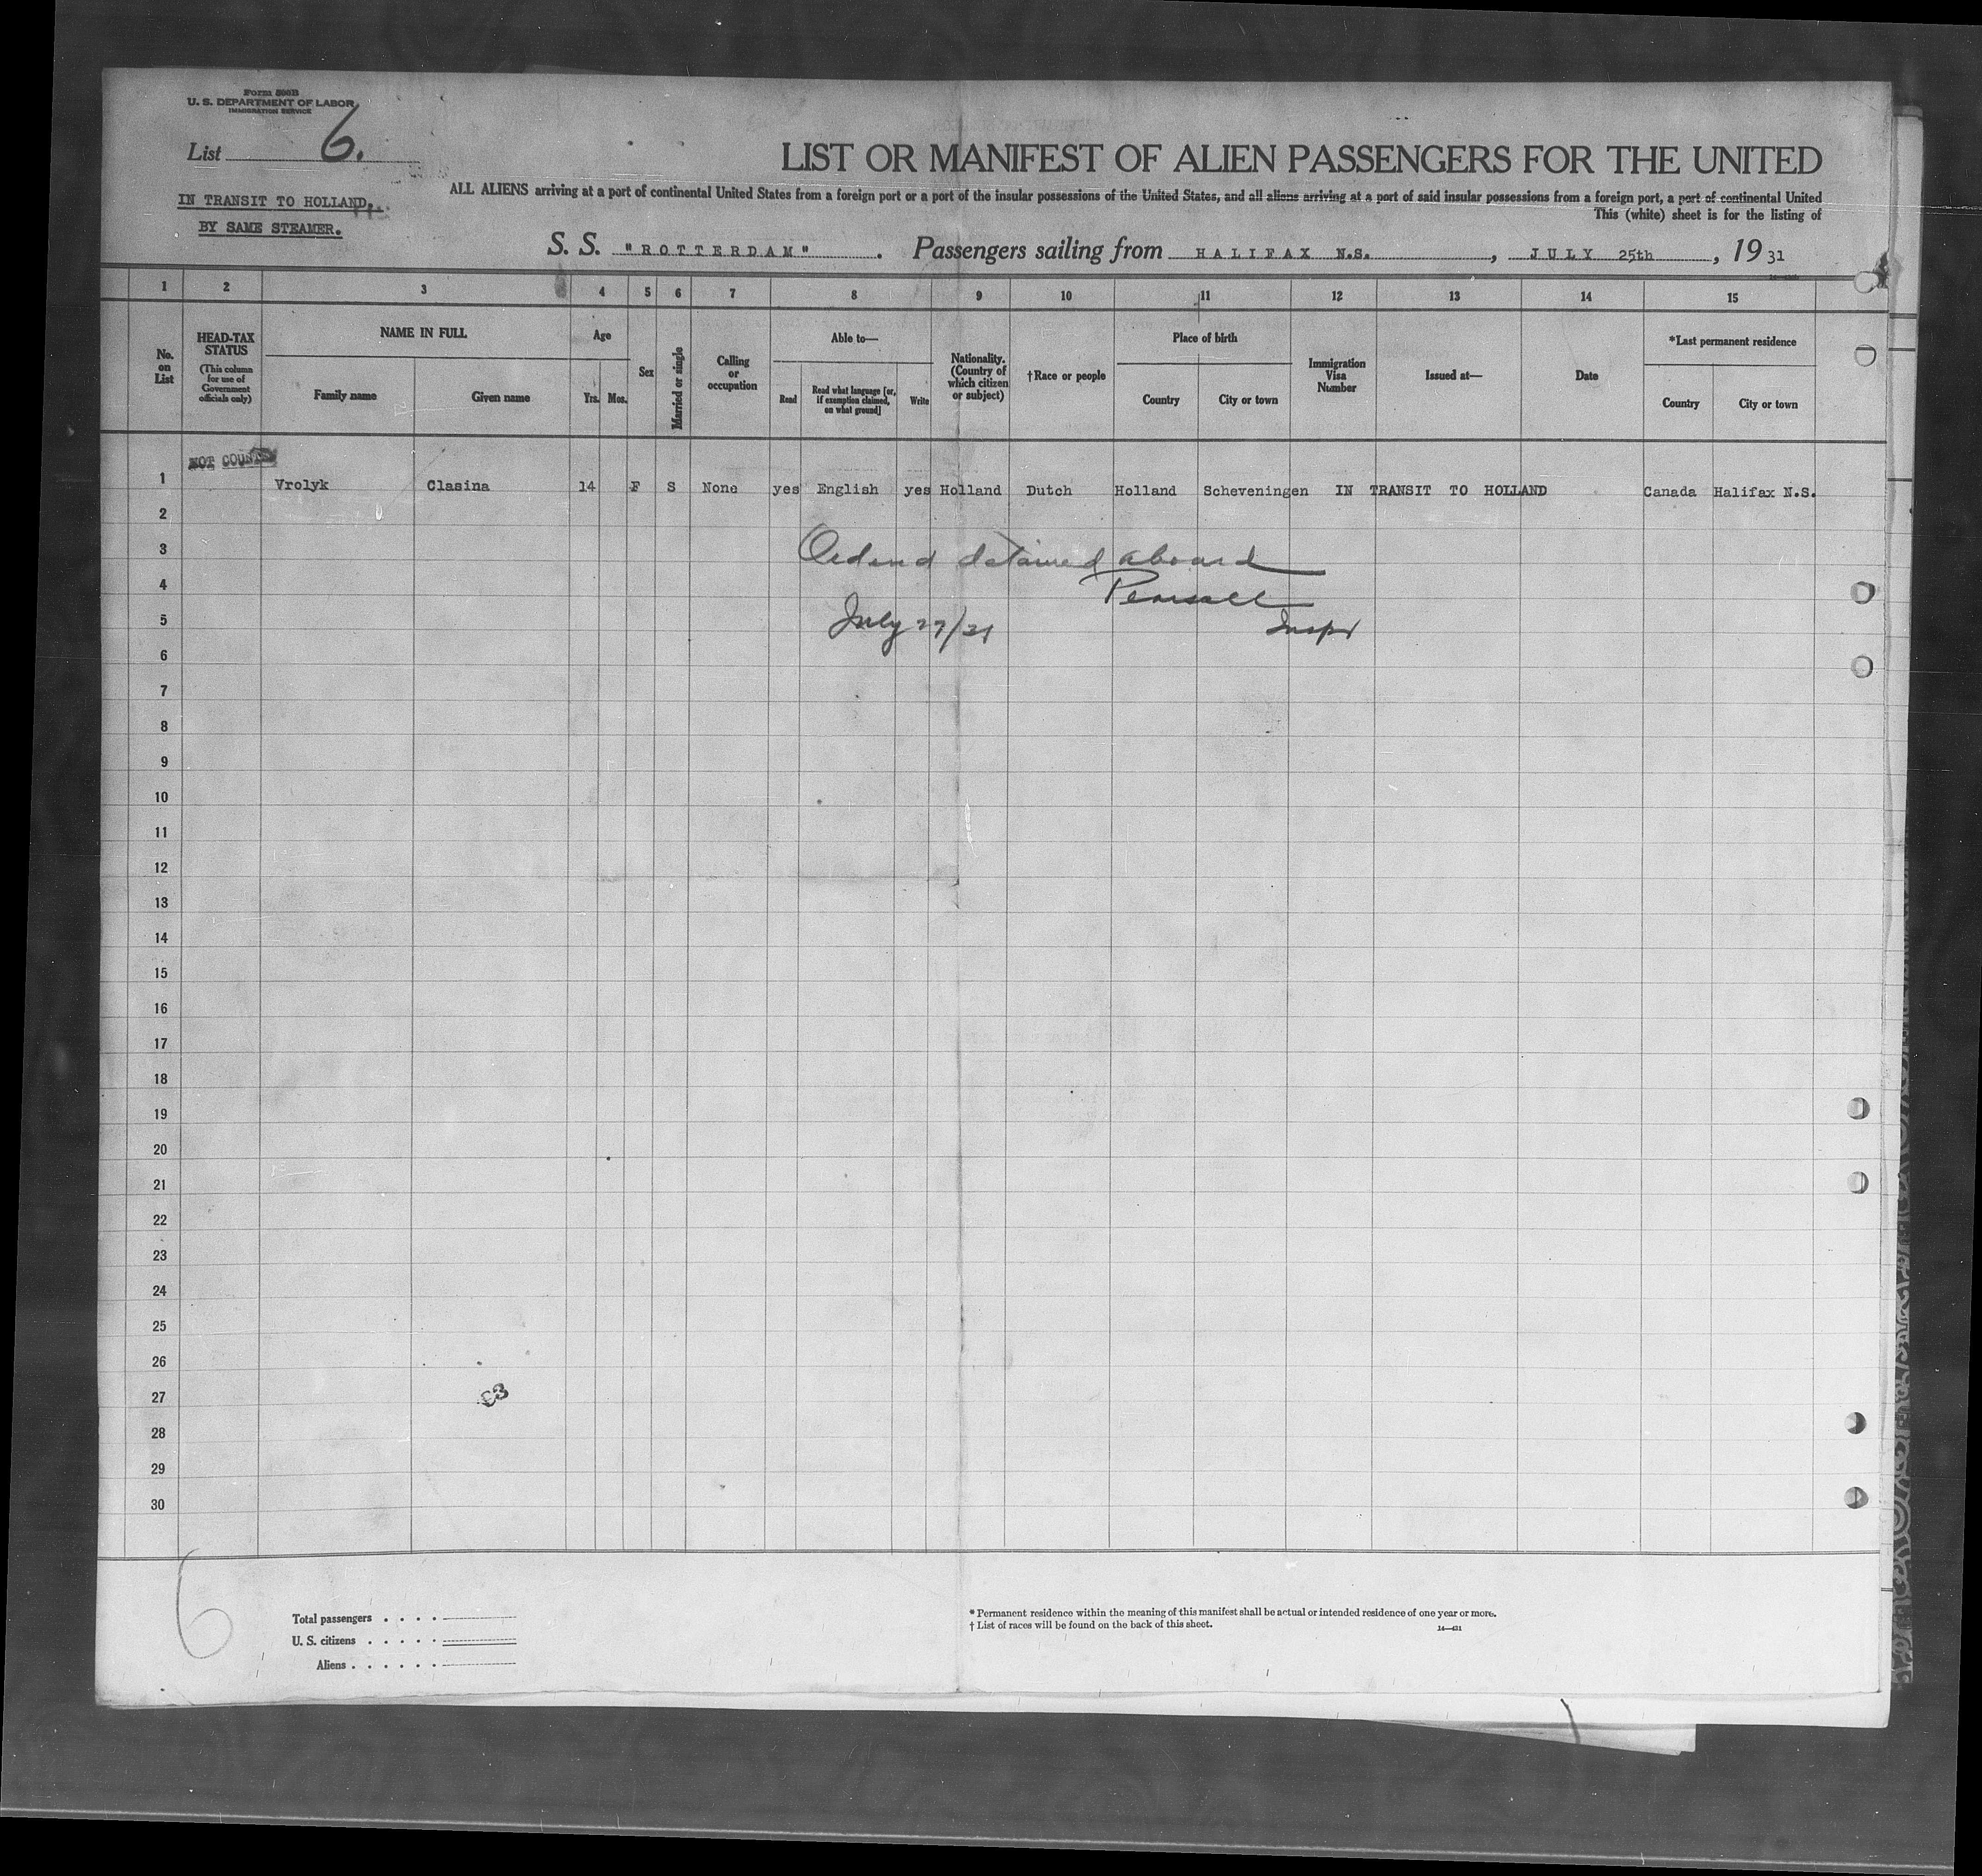 Form 500B
U. S. DEPARTMENT OF LABOR
IMMIGRATION SERVICE
List 6.
LIST OR MANIFEST OF ALIEN PASSENGERS FOR THE UNITED
ALL ALIENS arriving at a port of continental United States from a foreign port or a port of the insular possessions of the United States, and all aliens arriving at a port of said insular possessions from a foreign port, a port of continental United
This (white) sheet is for the listing of
IN TRANSIT TO HOLLAND,
BY SAME STEAMER.
S. S. "ROTTERDAM" . Passengers sailing from HALIFAX N.S. , JULY 25th , 19 31
1 2 3 4 5 6 7 8 9 10 11 12 13 14 15
No. on List
HEAD-TAX STATUS (This column for use of Government officials only)
NAME IN FULL
Family name
Given name
Age
Yrs. Mos.
Sex
Married or single
Calling or occupation
Able to—
Read
Read what language [or, if exemption claimed, on what ground]
Write
Nationality. (Country of which citizen or subject)
†Race or people
Place of birth
Country
City or town
Immigration Visa Number
Issued at—
Date
*Last permanent residence
Country
City or town
NOT COUNT
1 Vrolyk Clasina 14 F S None yes English yes Holland Dutch Holland Scheveningen IN TRANSIT TO HOLLAND Canada Halifax N.S.
2
3 detained aboard
4 Pearsall
5 July 27/31 Inspr
6
7
8
9
10
11
12
13
14
15
16
17
18
19
20
21
22
23
24
25
26
27
28
29
30
6
Total passengers . . . .
U. S. citizens . . . . .
Aliens . . . . . .
* Permanent residence within the meaning of this manifest shall be actual or intended residence of one year or more.
† List of races will be found on the back of this sheet.
14—421